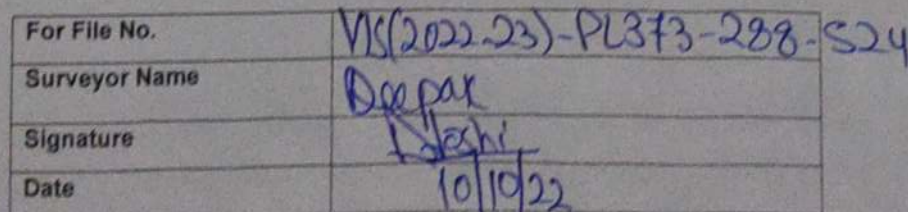 For File No. VIS(2022-23)-PL373-288-S24
Surveyor Name Deepak
Signature Joshi
Date 10/10/22